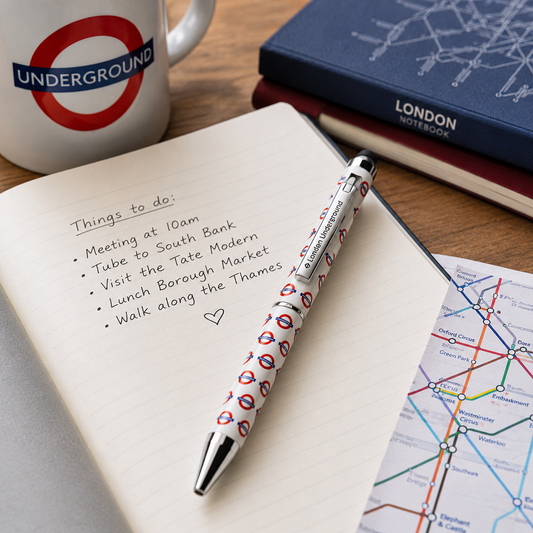 UNDERGROUND
LONDON
NOTEBOOK
Things to do:
• Meeting at 10am
• Tube to South Bank
• Visit the Tate Modern
• Lunch Borough Market
• Walk along the Thames
♡
London Underground
Oxford Circus
Green Park
Embankment
Westminster
Circus
Waterloo
Southwark
Elephant
& Castle